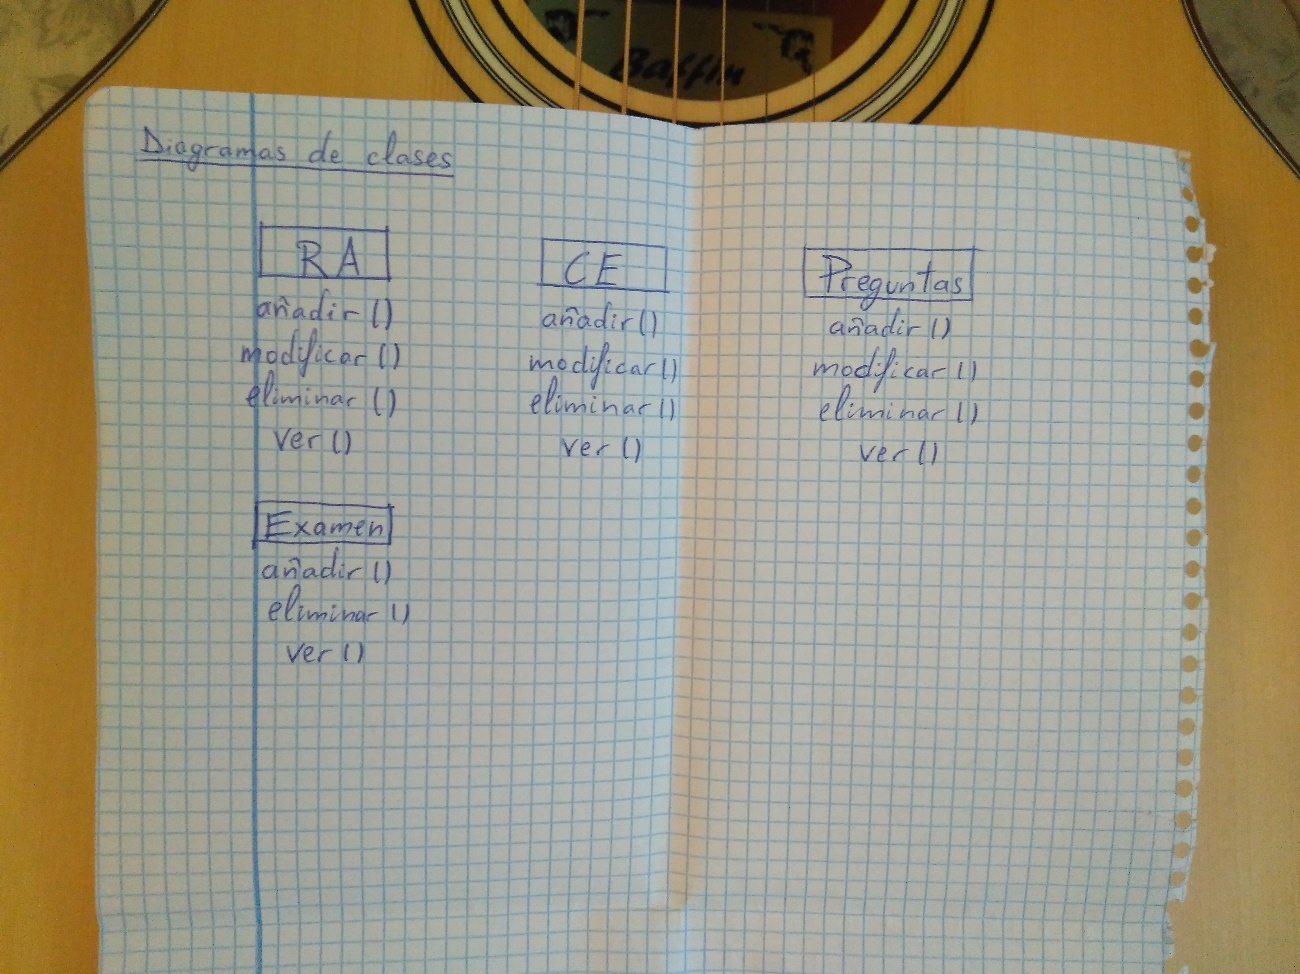 Baffin
Diagramas de clases
RA
añadir ()
modificar ()
eliminar ()
ver ()
CE
añadir ()
modificar ()
eliminar ()
ver ()
Preguntas
añadir ()
modificar ()
eliminar ()
ver ()
Examen
añadir ()
eliminar ()
ver ()